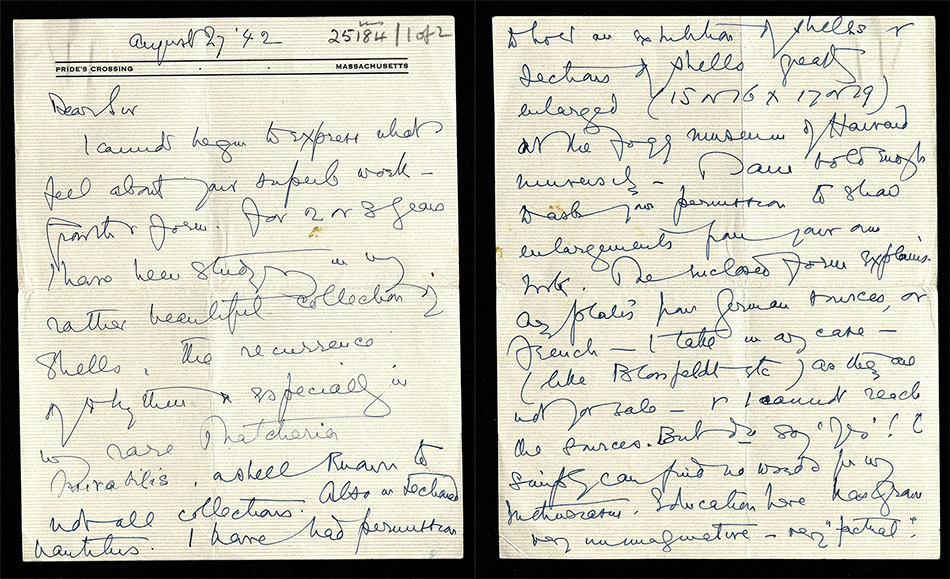 August 27 '42
25184/1 of 2
PRIDE'S CROSSING MASSACHUSETTS
Dear Sir
I cannot begin to express what I
feel about your superb work –
Growth & Form. For 2 or 3 years
I have been studying in my
rather beautiful collection of
Shells, the recurrence
of rhythm & especially in
my rare Thatcheria
Mirabilis, a shell known to
not all collections. Also in sectioned
nautilus. I have had permission
to hold an exhibition of shells &
sections of shells greatly
enlarged (15 or 16 x 17 or 19)
at the Fogg Museum of Harvard
University – I am bold enough
to ask for permission to show
enlargements from your own
work. The enclosed form explains.
Any plates from German sources, or
French – I take in any case –
(like Blossfeldt etc) as they are
not for sale – & I cannot reach
the sources. But do say "Yes"! I
simply can find no words for my
enthusiasm. Education here has grown
very unimaginative – very "factual".